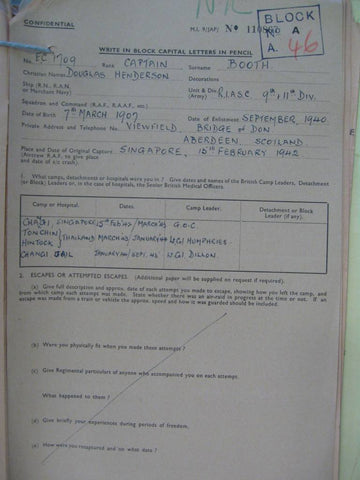 NR
CONFIDENTIAL
M.I. 9/JAP/ No 110860
BLOCK
No A
A. 46
WRITE IN BLOCK CAPITAL LETTERS IN PENCIL
No. EC 1709 Rank CAPTAIN Surname BOOTH
Christian Names DOUGLAS HENDERSON Decorations
Ship (R.N., R.A.N. or Merchant Navy) Unit & Div. (Army) R.I.A.S.C. 9th, 11th Div.
Squadron and Command (R.A.F., R.A.A.F., etc.)
Date of Birth 7th MARCH 1907 Date of Enlistment SEPTEMBER, 1940.
Private Address and Telephone No. VIEWFIELD, BRIDGE OF DON
ABERDEEN, SCOTLAND.
Place and Date of Original Capture SINGAPORE, 15th FEBRUARY 1942
(Aircrew R.A.F. to give place
and date of a/c crash).
1. What camps, detachments or hospitals were you in? Give dates and names of the British Camp Leaders, Detachment
(or Block) Leaders or, in the case of hospitals, the Senior British Medical Officers.
Camp or Hospital. Dates. Camp Leader. Detachment or Block Leader (if any).
CHANGI, SINGAPORE 15th FEB '42 / MARCH '43 G.O.C
TONCHIN
HINTOCK } THAILAND MARCH '43 JANUARY '44 Lt. Col HUMPHRIES
CHANGI JAIL JANUARY '44 / SEPT. '45 Lt. Col. DILLON.
2. ESCAPES OR ATTEMPTED ESCAPES. (Additional paper will be supplied on request if required).
(a) Give full description and approx. date of each attempt you made to escape, showing how you left the camp, and
from which camp each attempt was made. State whether there was an air-raid in progress at the time or not. If an
escape was made from a train or vehicle the approx. speed and how it was guarded should be included.
(b) Were you physically fit when you made these attempts?
(c) Give Regimental particulars of anyone who accompanied you on each attempt.
What happened to them?
(d) Give briefly your experiences during periods of freedom.
(e) How were you recaptured and on what date?